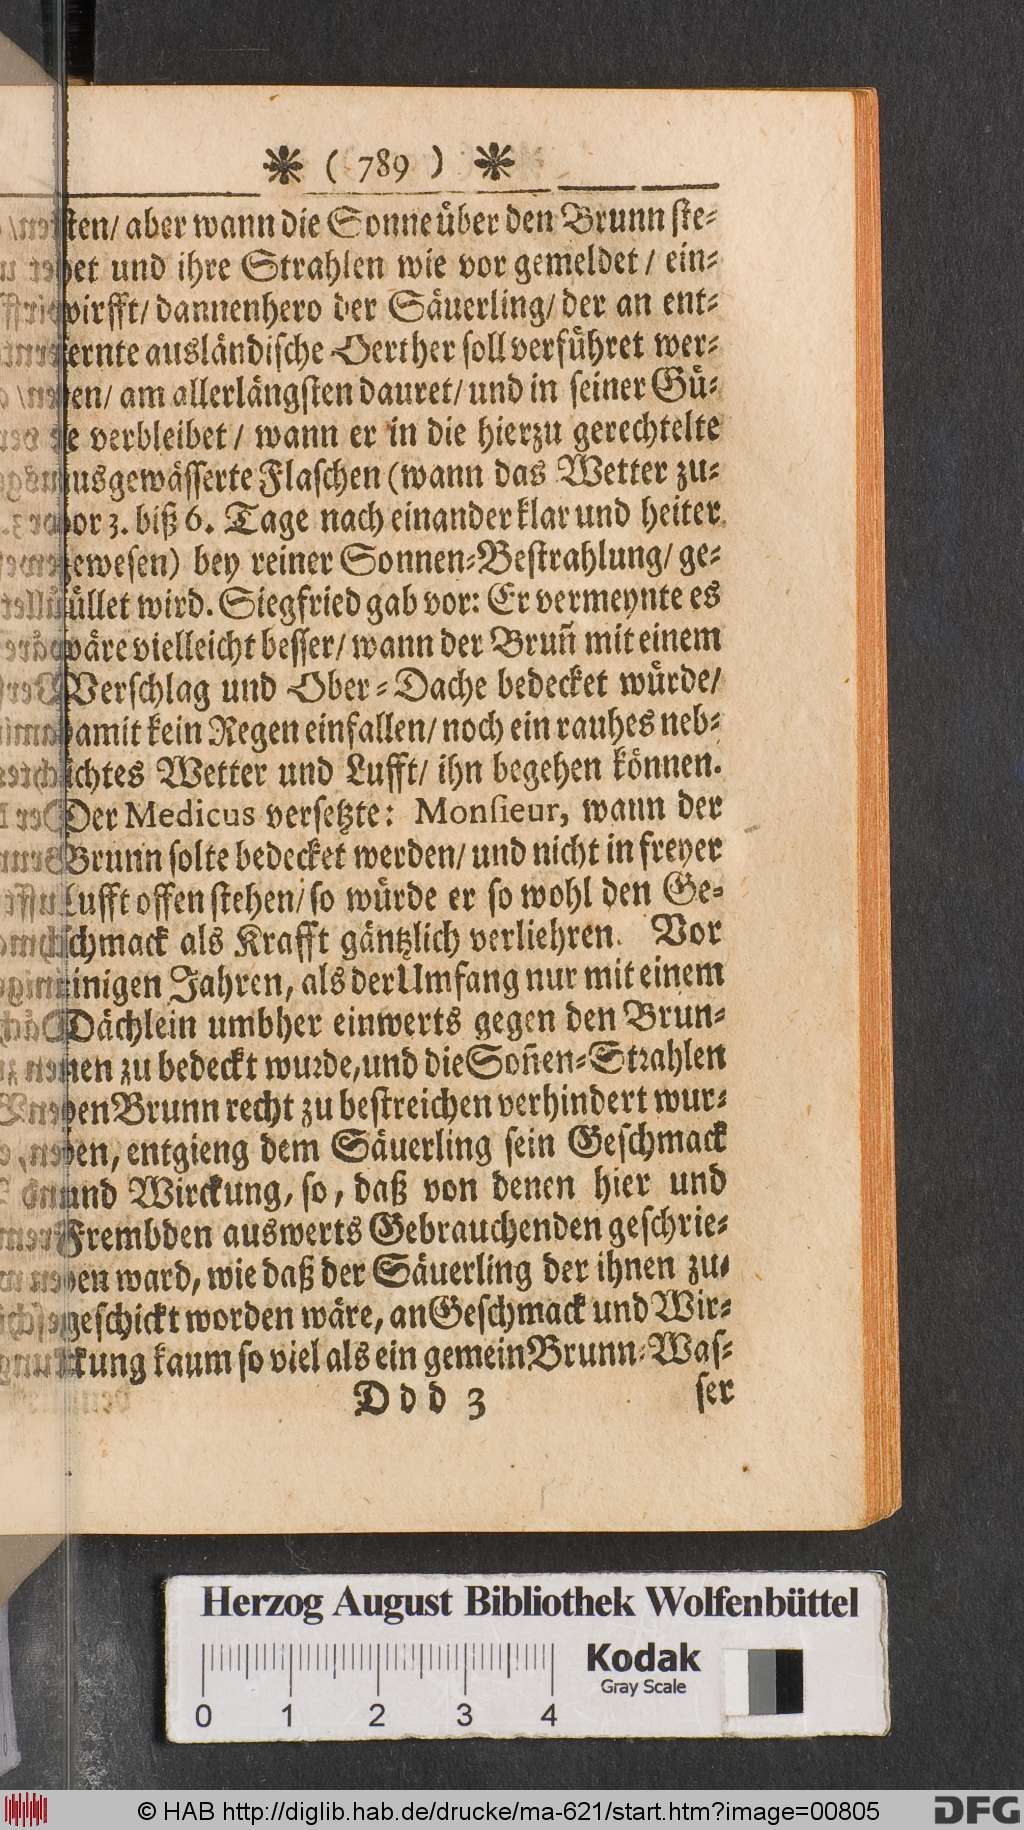 ❋ ( 789 ) ❋
sten/ aber wann die Sonne über den Brunn ste-
het und ihre Strahlen wie vor gemeldet / ein-
wirfft/ dannenhero der Säuerling/ der an ent-
fernte ausländische Oerther soll verführet wer-
den/ am allerlängsten dauret/ und in seiner Gü-
te verbleibet / wann er in die hierzu gerechtelte
ausgewässerte Flaschen (wann das Wetter zu-
vor 3. biß 6. Tage nach einander klar und heiter
gewesen) bey reiner Sonnen-Bestrahlung/ ge-
füllet wird. Siegfried gab vor: Er vermeynte es
wäre vielleicht besser/ wann der Bruñ mit einem
Verschlag und Ober-Dache bedecket würde/
damit kein Regen einfallen/ noch ein rauhes neb-
lichtes Wetter und Lufft/ ihn begehen können.
Der Medicus versetzte: Monsieur, wann der
Brunn solte bedecket werden/ und nicht in freyer
Lufft offen stehen/ so würde er so wohl den Ge-
schmack als Krafft gäntzlich verliehren. Vor
einigen Jahren, als der Umfang nur mit einem
Dächlein umbher einwerts gegen den Brun-
nen zu bedeckt wurde, und die Soñen-Strahlen
den Brunn recht zu bestreichen verhindert wur-
den, entgieng dem Säuerling sein Geschmack
und Wirckung, so, daß von denen hier und
Frembden auswerts Gebrauchenden geschrie-
ben ward, wie daß der Säuerling der ihnen zu-
geschickt worden wäre, an Geschmack und Wir-
ckung kaum so viel als ein gemein Brunn-Was-
D d d 3 ser
Herzog August Bibliothek Wolfenbüttel
Kodak
Gray Scale
0 1 2 3 4
© HAB http://diglib.hab.de/drucke/ma-621/start.htm?image=00805
DFG